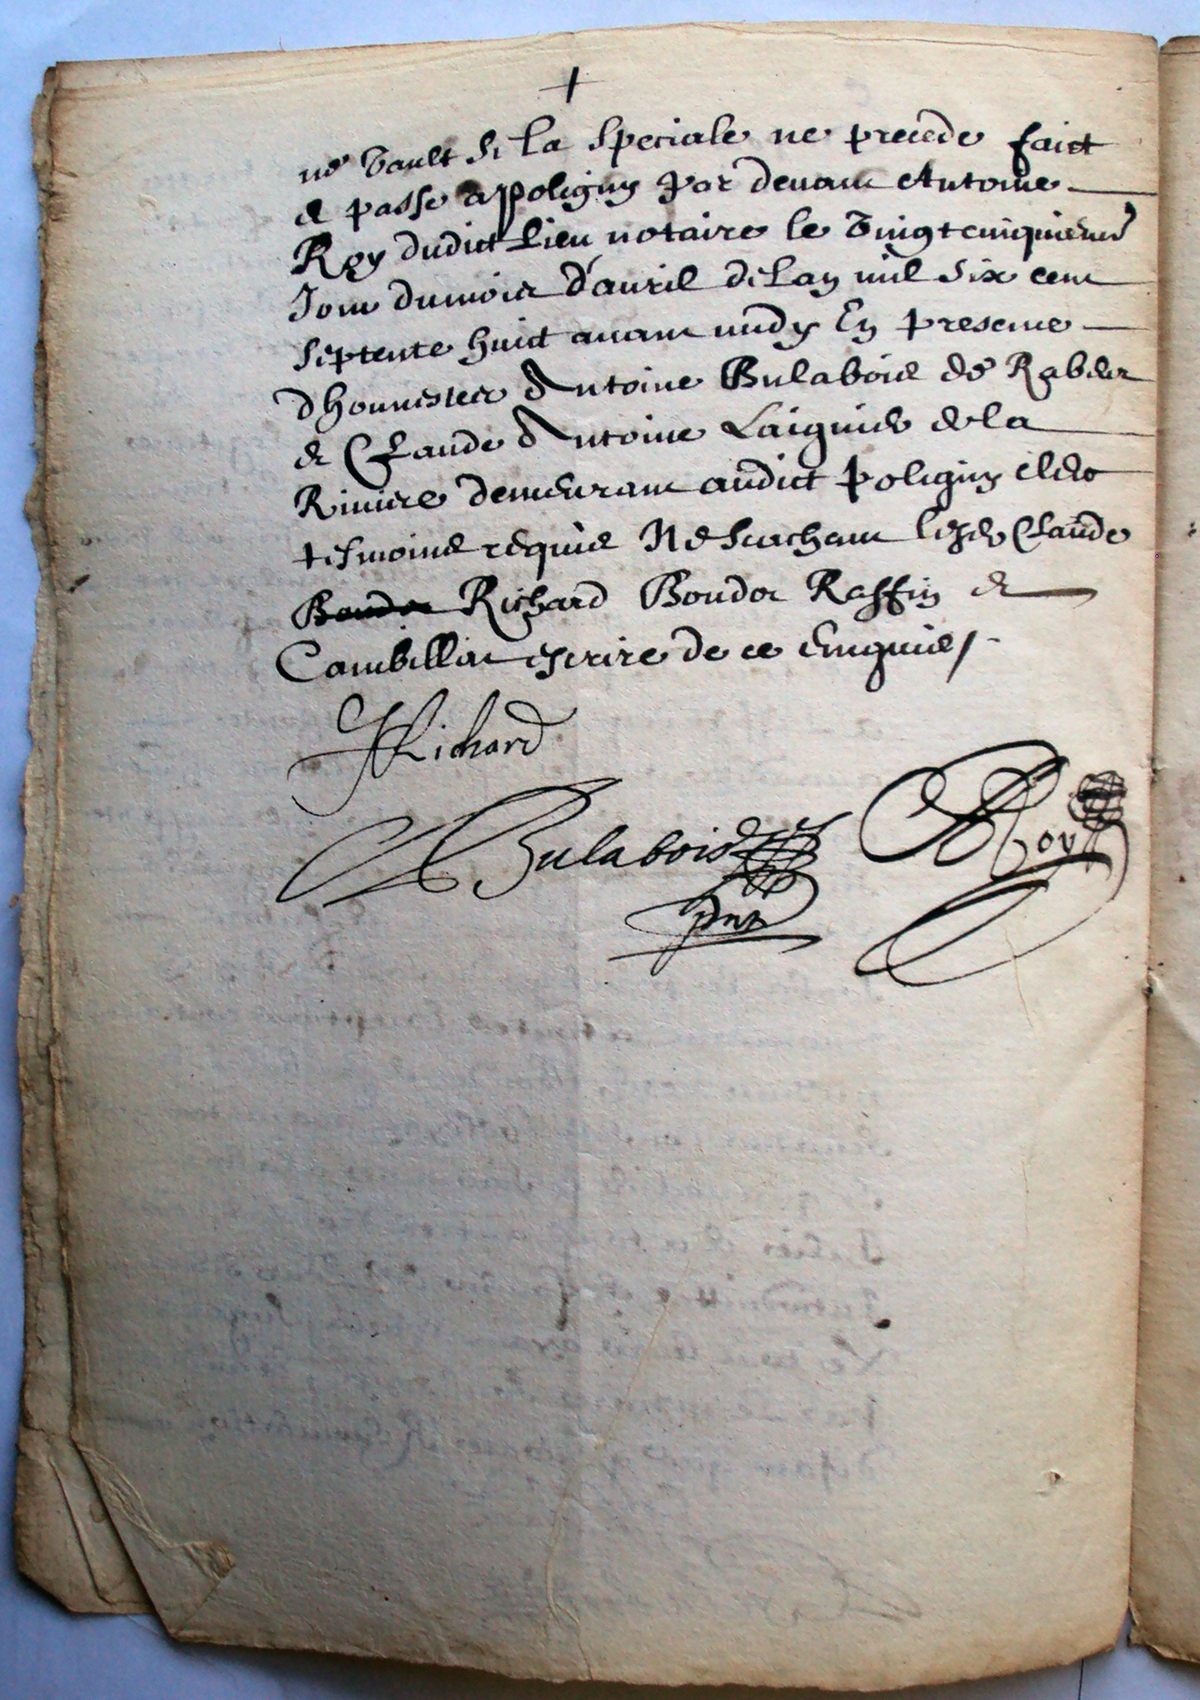 ne vault si la speciale ne precede faict
et passe a poligny par devant Antoine
Roy dudict lieu notaire le vingtcinquieme
Jour du mois d'avril de lan mil six cent
septente huict avant midy En presence
dhonnestes Antoine Bulabois de
et Claude Antoine de la
Riviere demeurant audict poligny
tesmoins requis Ne scachant Claude
Boudor Richard Boudor Raffin et
Cambillar escrire de ce Enquis
Richard
Bulabois
Roy